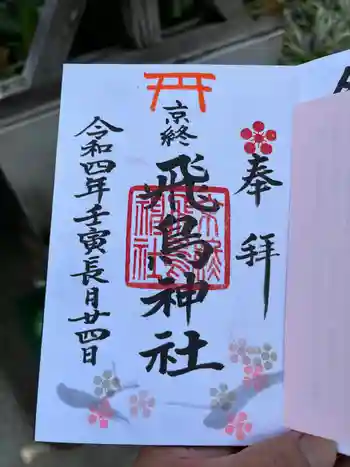 奉拝
京終
飛鳥神社
令和四年壬寅長月廿四日